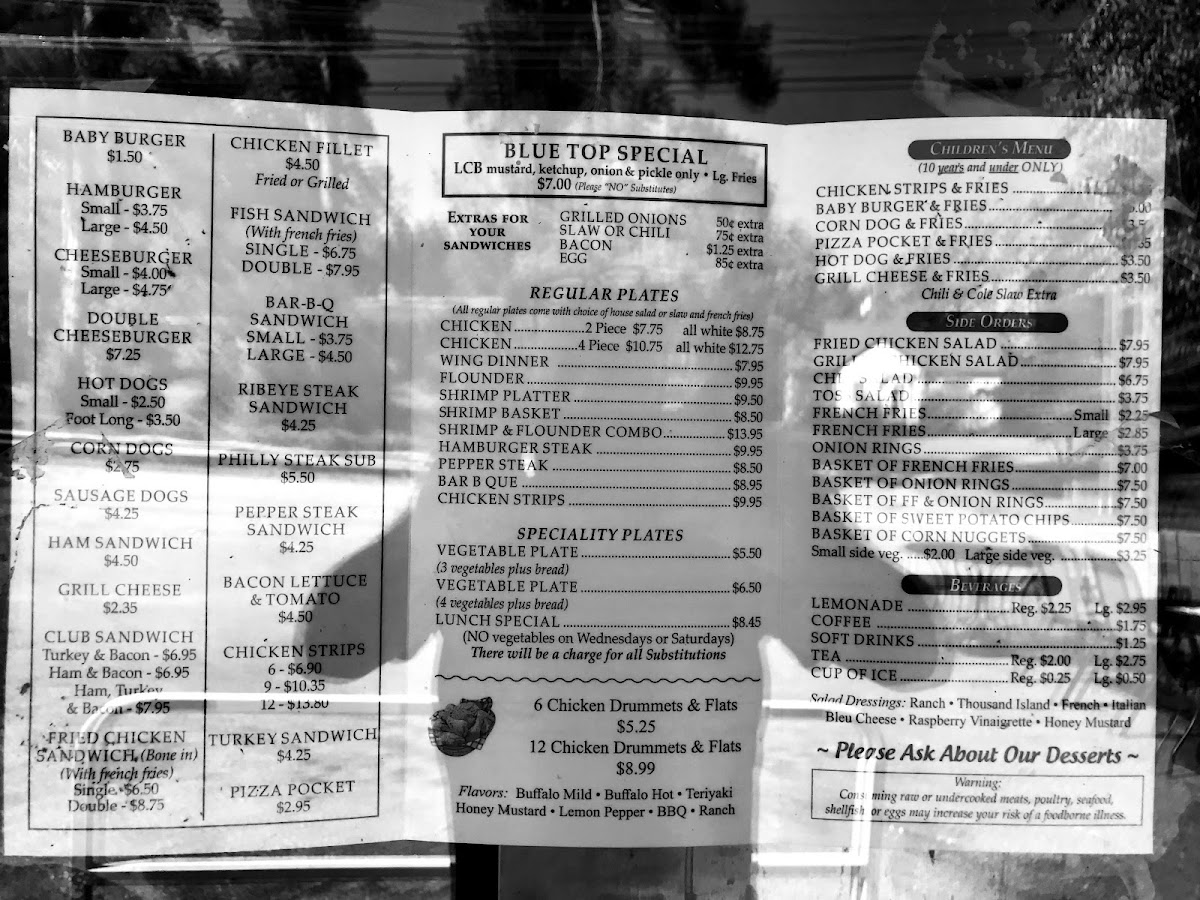 BABY BURGER
$1.50
HAMBURGER
Small - $3.75
Large - $4.50
CHEESEBURGER
Small - $4.00
Large - $4.75
DOUBLE
CHEESEBURGER
$7.25
HOT DOGS
Small - $2.50
Foot Long - $3.50
CORN DOGS
$2.75
SAUSAGE DOGS
$4.25
HAM SANDWICH
$4.50
GRILL CHEESE
$2.35
CLUB SANDWICH
Turkey & Bacon - $6.95
Ham & Bacon - $6.95
Ham, Turkey
& Bacon - $7.95
FRIED CHICKEN
SANDWICH (Bone in)
(With french fries)
Single - $6.50
Double - $8.75
CHICKEN FILLET
$4.50
Fried or Grilled
FISH SANDWICH
(With french fries)
SINGLE - $6.75
DOUBLE - $7.95
BAR-B-Q
SANDWICH
SMALL - $3.75
LARGE - $4.50
RIBEYE STEAK
SANDWICH
$4.25
PHILLY STEAK SUB
$5.50
PEPPER STEAK
SANDWICH
$4.25
BACON LETTUCE
& TOMATO
$4.50
CHICKEN STRIPS
6 - $6.90
9 - $10.35
12 - $13.80
TURKEY SANDWICH
$4.25
PIZZA POCKET
$2.95
BLUE TOP SPECIAL
LCB mustard, ketchup, onion & pickle only • Lg. Fries
$7.00 (Please "NO" Substitutes)
EXTRAS FOR
YOUR
SANDWICHES
GRILLED ONIONS 50¢ extra
SLAW OR CHILI 75¢ extra
BACON $1.25 extra
EGG 85¢ extra
REGULAR PLATES
(All regular plates come with choice of house salad or slaw and french fries)
CHICKEN 2 Piece $7.75 all white $8.75
CHICKEN 4 Piece $10.75 all white $12.75
WING DINNER $7.95
FLOUNDER $9.95
SHRIMP PLATTER $9.50
SHRIMP BASKET $8.50
SHRIMP & FLOUNDER COMBO $13.95
HAMBURGER STEAK $9.95
PEPPER STEAK $8.50
BAR B QUE $8.95
CHICKEN STRIPS $9.95
SPECIALITY PLATES
VEGETABLE PLATE $5.50
(3 vegetables plus bread)
VEGETABLE PLATE $6.50
(4 vegetables plus bread)
LUNCH SPECIAL $8.45
(NO vegetables on Wednesdays or Saturdays)
There will be a charge for all Substitutions
6 Chicken Drummets & Flats
$5.25
12 Chicken Drummets & Flats
$8.99
Flavors: Buffalo Mild • Buffalo Hot • Teriyaki
Honey Mustard • Lemon Pepper • BBQ • Ranch
CHILDREN'S MENU
(10 years and under ONLY)
CHICKEN STRIPS & FRIES
BABY BURGER & FRIES
CORN DOG & FRIES
PIZZA POCKET & FRIES
HOT DOG & FRIES $3.50
GRILL CHEESE & FRIES $3.50
Chili & Cole Slaw Extra
SIDE ORDERS
FRIED CHICKEN SALAD $7.95
CHICKEN SALAD $7.95
$6.75
SALAD $3.75
FRENCH FRIES Small $2.25
FRENCH FRIES Large $2.85
ONION RINGS $3.75
BASKET OF FRENCH FRIES $7.00
BASKET OF ONION RINGS $7.50
BASKET OF FF & ONION RINGS $7.50
BASKET OF SWEET POTATO CHIPS $7.50
BASKET OF CORN NUGGETS $7.50
Small side veg. $2.00 Large side veg. $3.25
BEVERAGES
LEMONADE Reg. $2.25 Lg. $2.95
COFFEE $1.75
SOFT DRINKS $1.25
TEA Reg. $2.00 Lg. $2.75
CUP OF ICE Reg. $0.25 Lg. $0.50
Salad Dressings: Ranch • Thousand Island • French • Italian
Bleu Cheese • Raspberry Vinaigrette • Honey Mustard
~ Please Ask About Our Desserts ~
Warning:
Consuming raw or undercooked meats, poultry, seafood,
shellfish or eggs may increase your risk of a foodborne illness.